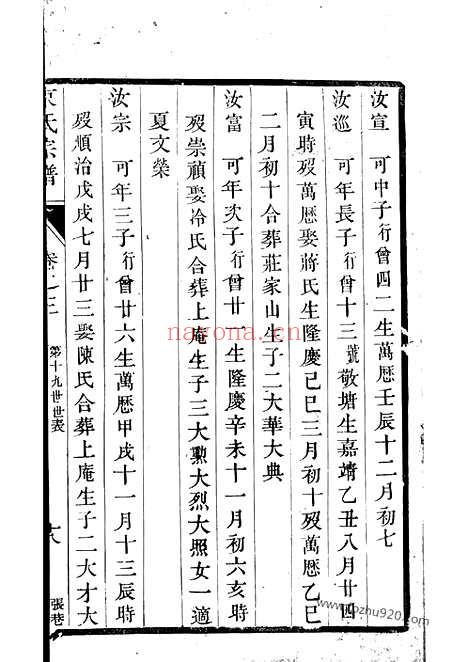 汝宣 可中子行曾四二生萬厯壬辰十二月初七
汝巡 可年長子行曾十三號敬塘生嘉靖乙丑八月廿四
寅時歿萬厯娶蔣氏生隆慶己巳三月初十歿萬厯乙巳
二月初十合葬莊家山生子二大華大典
汝富 可年次子行曾廿一生隆慶辛未十一月初六亥時
歿崇禎娶冷氏合葬上庵生子三大勲大烈大照女一適
夏文榮
汝宗 可年三子行曾廿六生萬厯甲戌十一月十三辰時
歿順治戊戌七月廿三娶陳氏合葬上庵生子二大才大
氏宗譜
卷之三
第十九世世表
張巷
nayona.com
zhu920.com